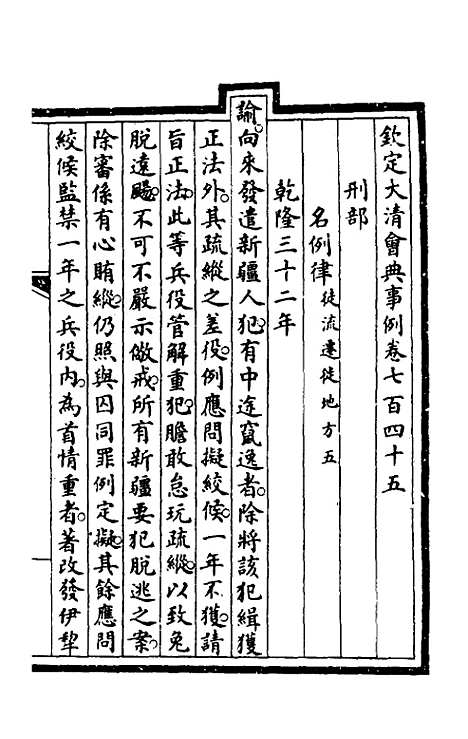 欽定大清會典事例卷七百四十五
刑部
名例律徒流遷徙地方五
乾隆三十二年
諭。向來發遣新疆人犯。有中途竄逸者。除將該犯緝獲
正法外。其疏縱之差役。例應問擬絞候。一年不獲。請
旨正法。此等兵役管解重犯。膽敢怠玩疏縱。以致兔
脫遠颺。不可不嚴示儆戒。所有新疆要犯脫逃之案。
除審係有心賄縱。仍照與囚同罪例定擬。其餘應問
絞候監禁一年之兵役內。為首情重者。著改發伊犂